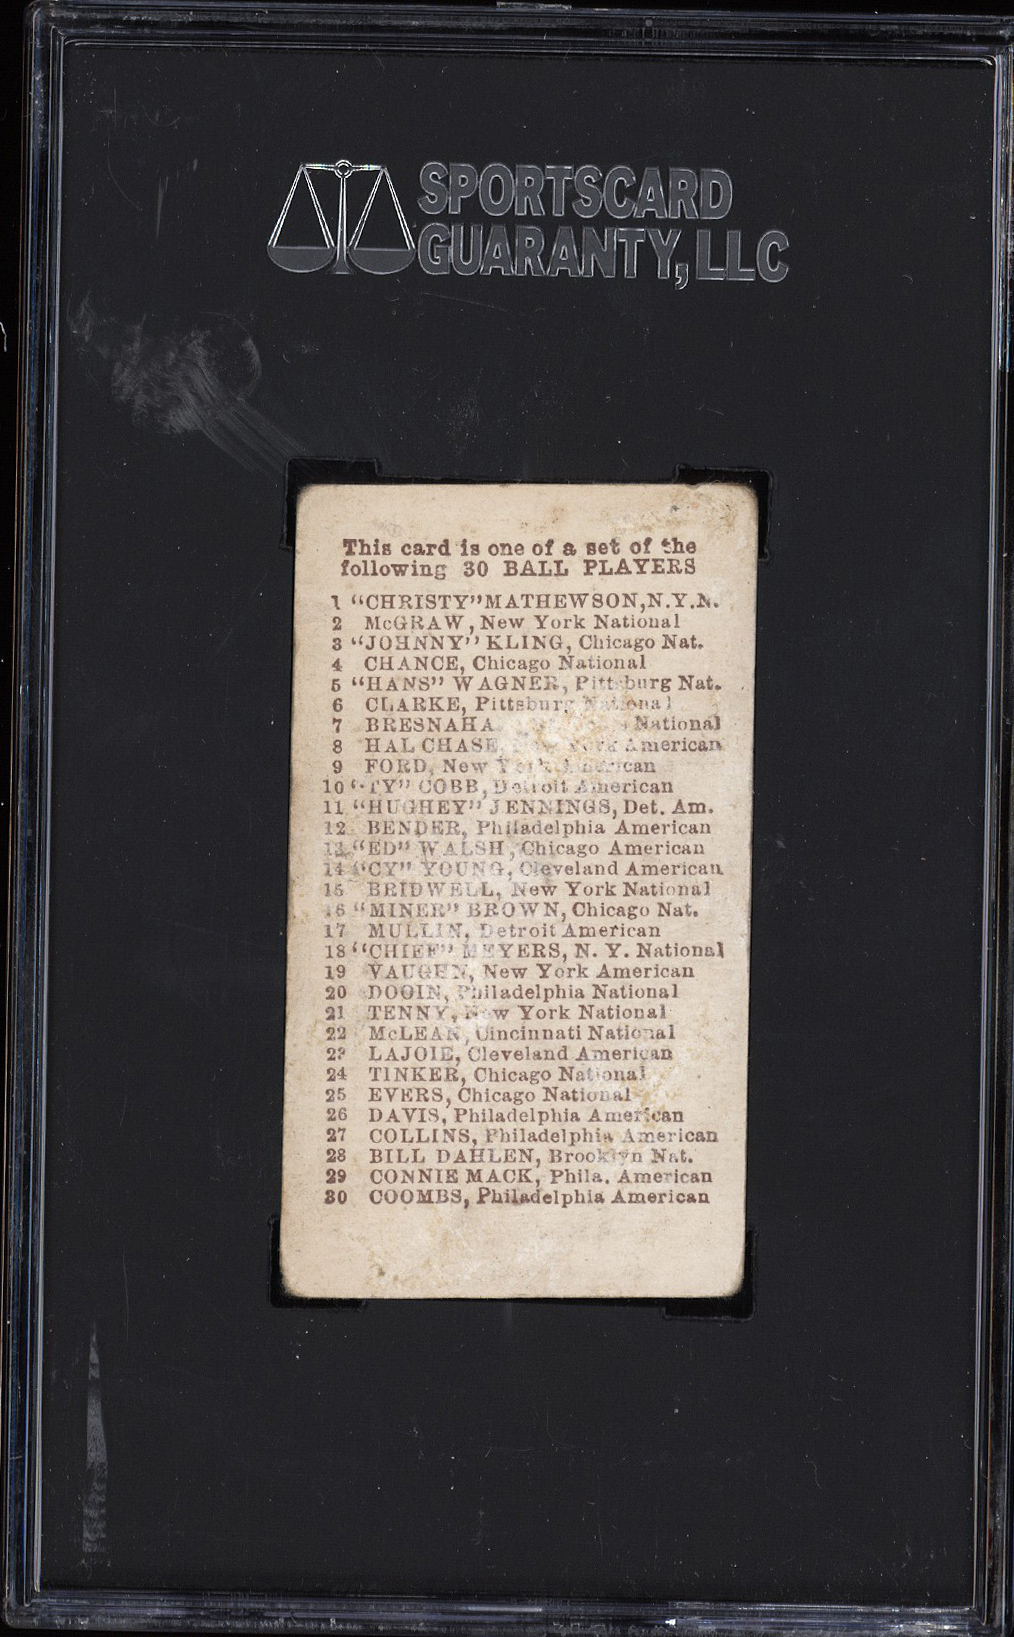 SPORTSCARD
GUARANTY, LLC
This card is one of a set of the
following 30 BALL PLAYERS
1 "CHRISTY" MATHEWSON, N.Y.N.
2 McGRAW, New York National
3 "JOHNNY" KLING, Chicago Nat.
4 CHANCE, Chicago National
5 "HANS" WAGNER, Pittsburg Nat.
6 CLARKE, Pittsburg National
7 BRESNAHA National
8 HAL CHASE, New York American
9 FORD, New York American
10 "TY" COBB, Detroit American
11 "HUGHEY" JENNINGS, Det. Am.
12 BENDER, Philadelphia American
13 "ED" WALSH, Chicago American
14 "CY" YOUNG, Cleveland American
15 BRIDWELL, New York National
16 "MINER" BROWN, Chicago Nat.
17 MULLIN, Detroit American
18 "CHIEF" MEYERS, N. Y. National
19 VAUGHN, New York American
20 DOOIN, Philadelphia National
21 TENNY, New York National
22 McLEAN, Cincinnati National
23 LAJOIE, Cleveland American
24 TINKER, Chicago National
25 EVERS, Chicago National
26 DAVIS, Philadelphia American
27 COLLINS, Philadelphia American
28 BILL DAHLEN, Brooklyn Nat.
29 CONNIE MACK, Phila. American
30 COOMBS, Philadelphia American